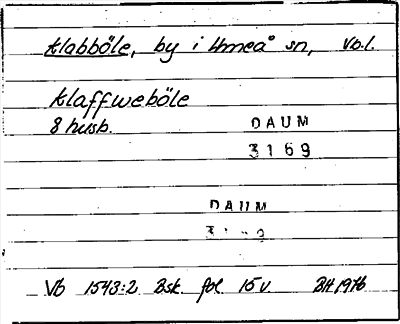 Klabböle, by i Umeå sn, Vb.l.
Klaffweböle
8 husb.
DAUM
3169
DAUM
Vb 1543:2 Bsk. fol. 15 v. BH 1976